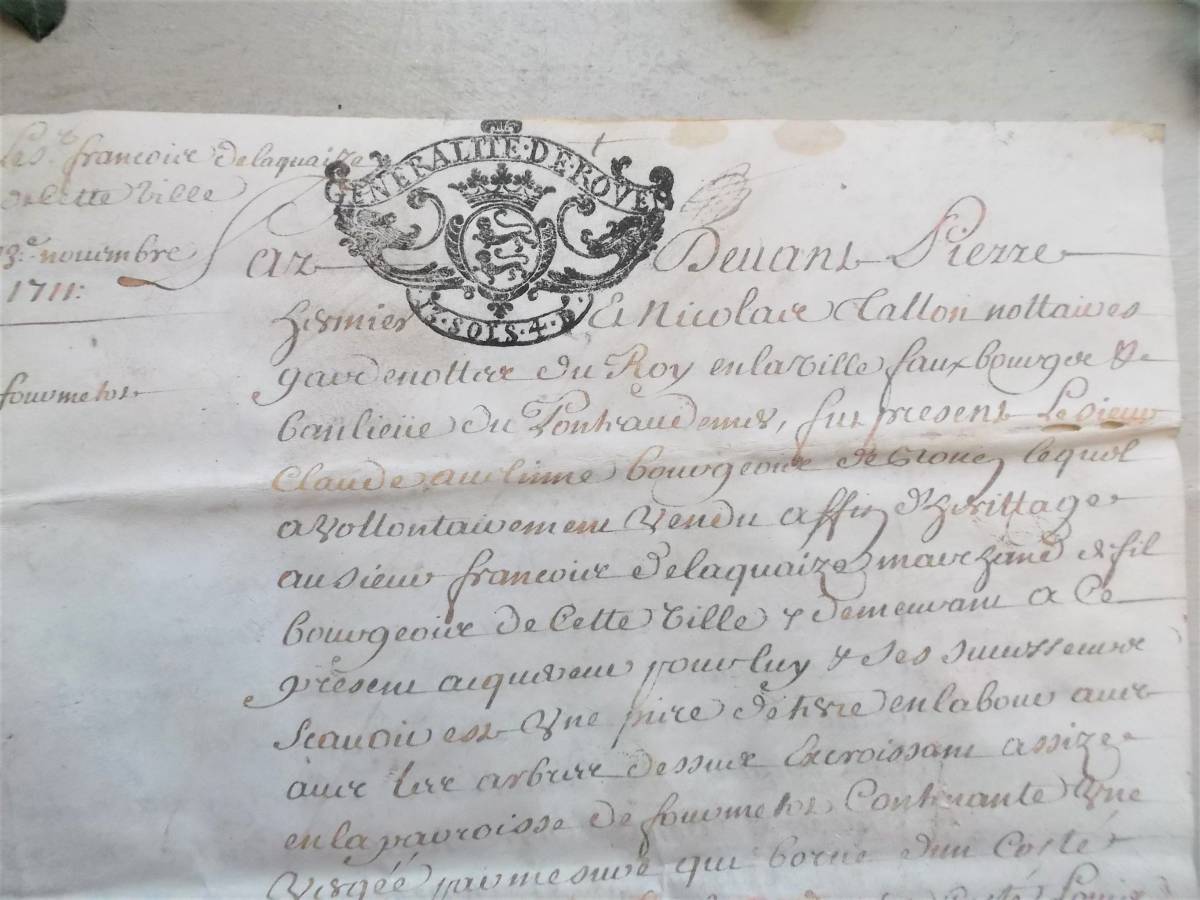 Le Sr. francoise delaquaize
de cette ville
13e. novembre
1711:
fourmetot
GENERALITE·DE·ROVEN
17·SOLS·4·D
Par Devant Pierre
hermier Et Nicolas Tallon nottaires
gardenottes du Roy en la ville fauxbourgs &
banlieüe du Ponteaudemer, fut present Le sieur
Claude bourgeois de lequel
a vollontairement vendu affin d'herittage
au sieur francois delaquaize marchand de fil
bourgeois de cette ville & demeurant a Ce
present acquereur pour luy & ses successeurs
scavoir est une piece de terre en labour avec
avec les arbres dessus Excroissant assize
en la parroisse de fourmetot Contenante Une
vergée par mesure qui borne d'un Costé
Costé Louis